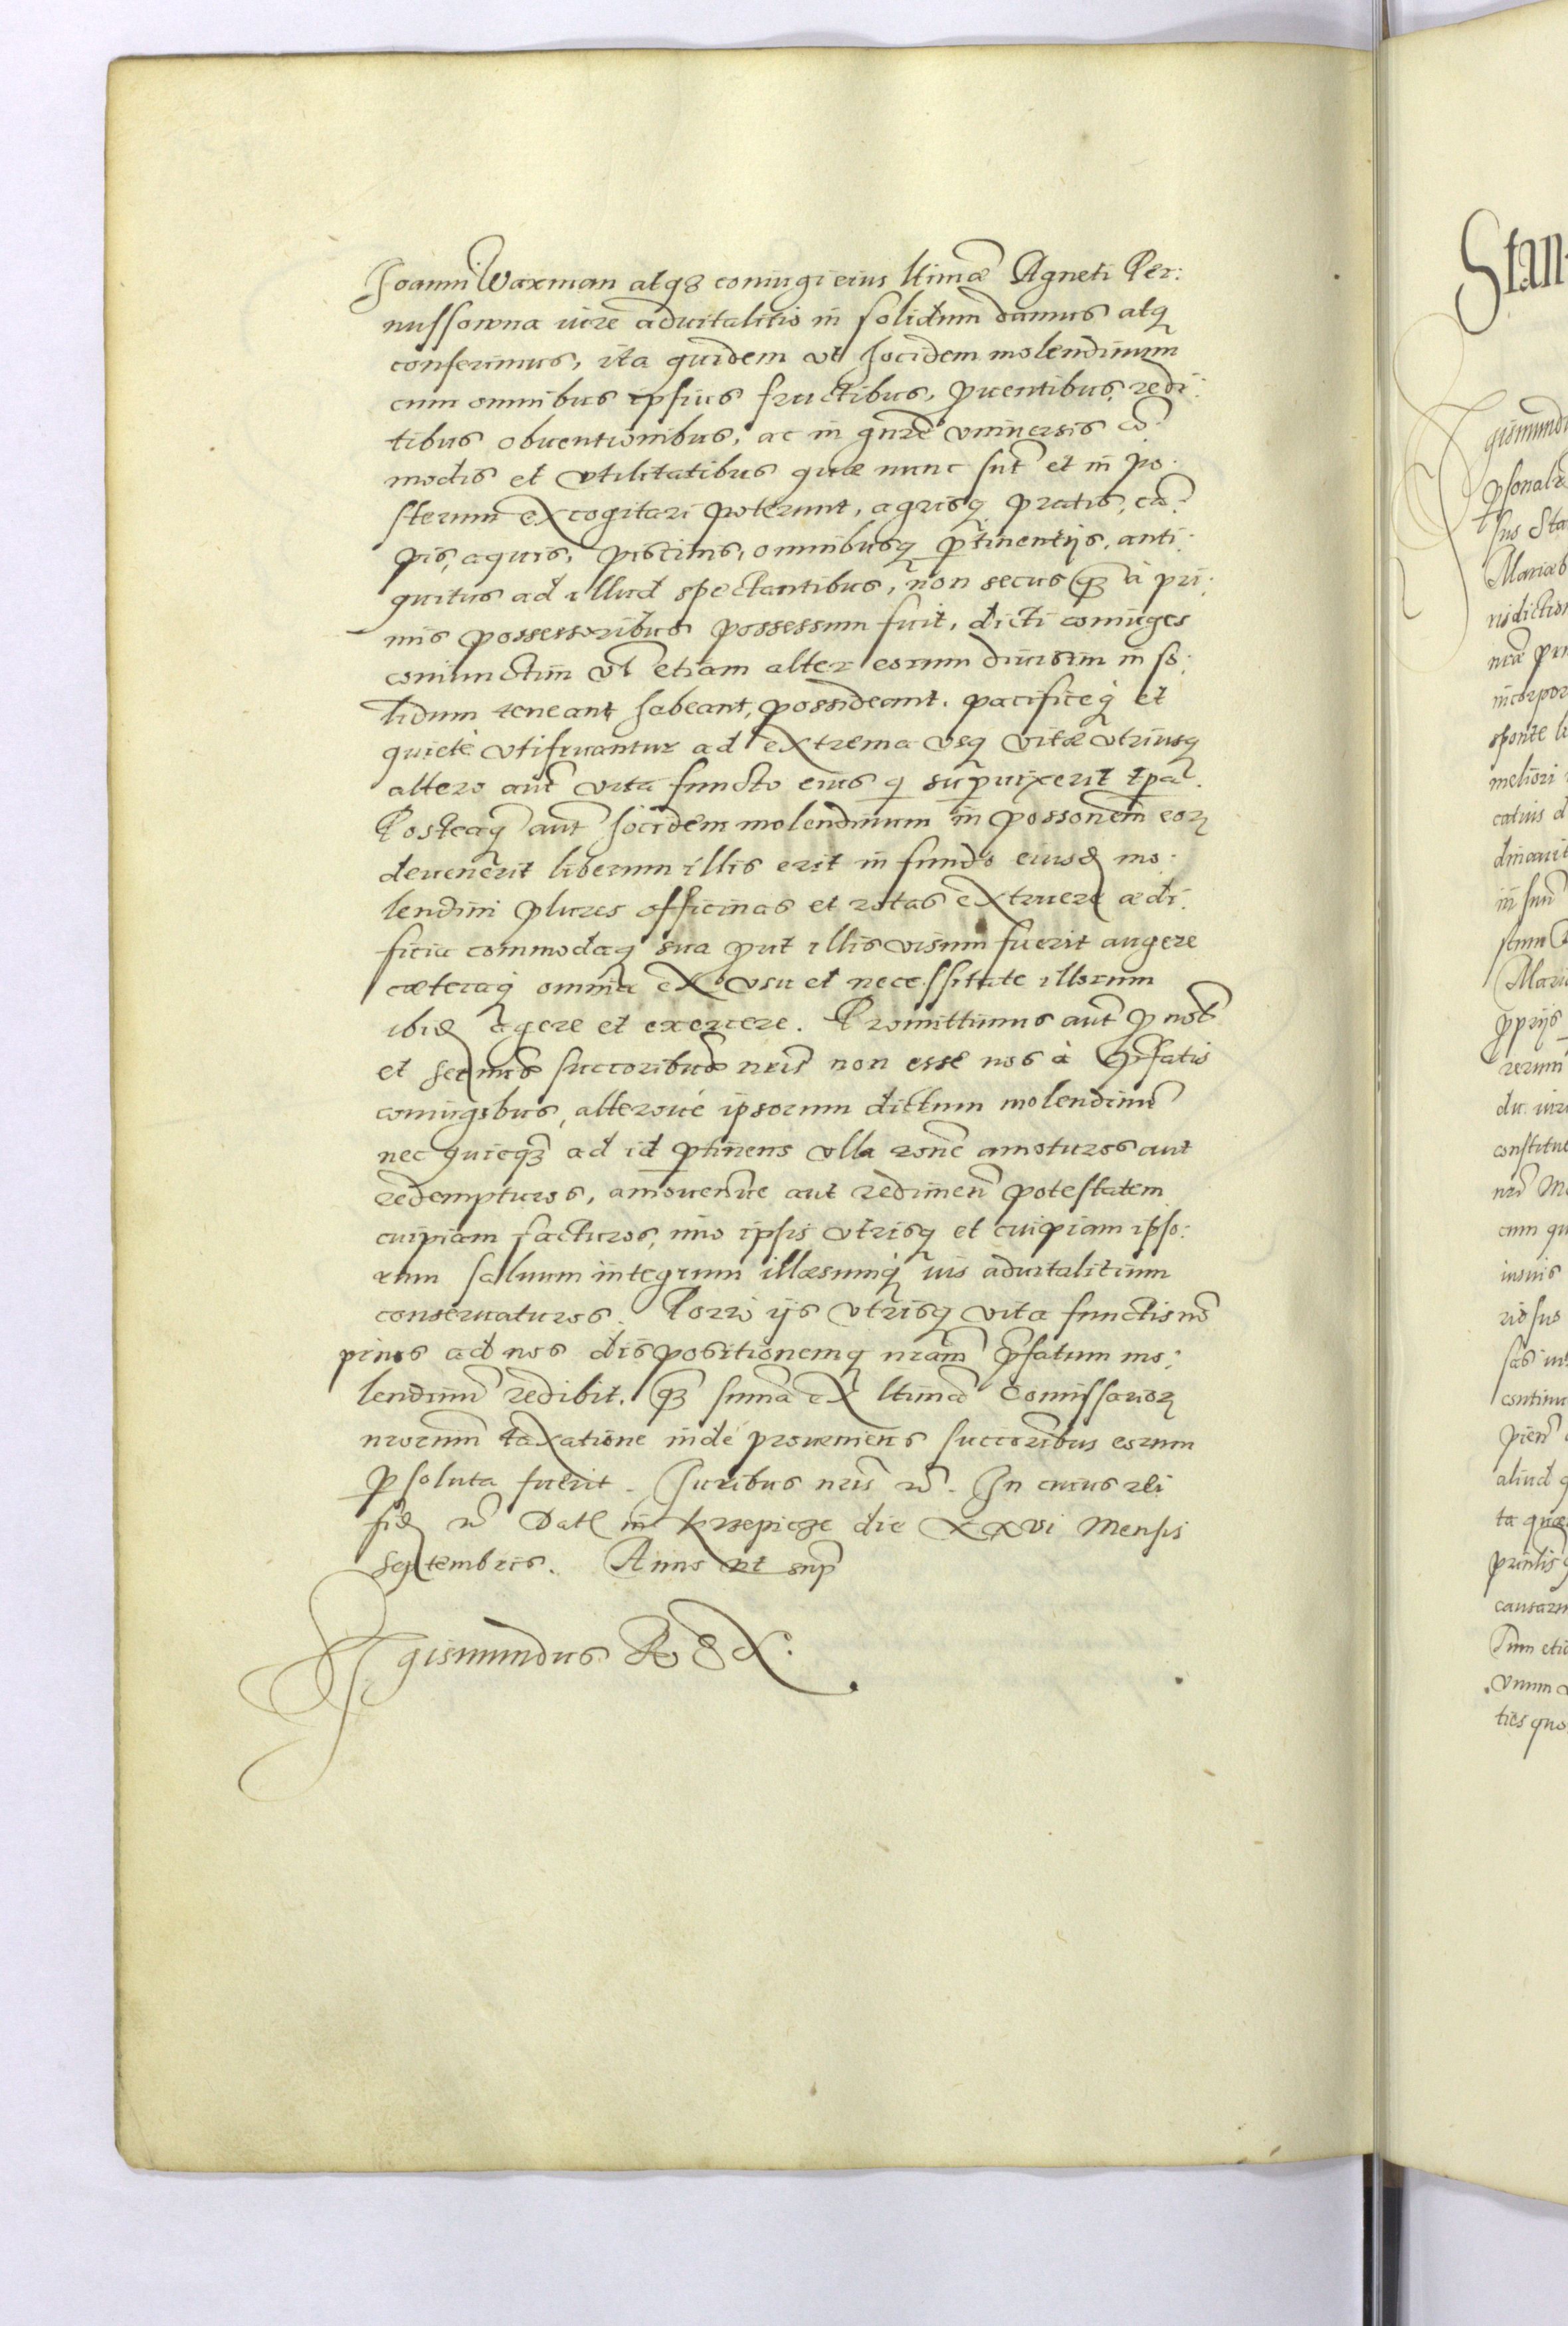 Joanni Waxman atq3 coniugi eius ltimæ Agneti Per:
nussowna iure aduitalitio in solidum damus atq
conferimus, ita quidem vt hocidem molendinum
cum omnibus ipsius fructibus, puentibus, redi:
tibus obuentionibus, ac in gnre vniuersis cõ:
modis et vtilitatibus quæ nunc sut et in po:
sterum excogitari poterunt, agrisq pratis, cã:
pis, aquis, piscinis, omnibusq ptinentijs, anti:
quitus ad illud spectantibus, non secus q3 à pri:
mis possessoribus possessum fuit, dicti coniuges
coniunctim vl etiam alter eorum diuisim in so:
lidum teneant habeant, possideant, pacificeq et
quietè vtifruantur ad extrema vsq vitæ vtriusq
altero aut vita functo eius q supuixerit tpa.
Posteaq aut hocidem molendinum in possonem eor
deuenerit liberum illis erit in fundo eiusd mo:
lendini plures officinas et rotas extruere ædi:
ficia commodaq sua put illis visum fuerit augere
cæteraq omnia ex vsu et necessitate illorum
ibid agere et exercere. Promittimus aut p nob
et sermis succoribus nris non esse nos à pfatis
coniugibus, alteroue ipsorum dictum molendinu
nec quicq3 ad id ptinens vlla rone amoturos aut
redempturos, amouendiue aut redimen potestatem
cuipiam facturos, imo ipsis vtrisq et cuipiam ipso:
rum saluum integrum illæsumq ius aduitalitium
conseruaturos. Porrò ijs vtrisq vita functis nõ
prius ad nos dispositionemq nram pfatum mo:
lendinu redibit. q3 suma ex ltima Comissarior
nrorum taxatione inde proueniens succoribus eorum
psoluta fuerit. Juribus nris rc. In cuius rei
fid rc Dat in Krzepicze die xxvi Mensis
Septembris. Anno vt sup
Sigismundus Rex.
Stan
gismundu
psonalit
sus Sta
Mariæ
risdiction
incorpor
sponte l
meliori
catiuis d
dinauit
in sum
Mari
pprijs
rerum
constitue
cum qu
iuris
rio suo
continu
aliud q
ta quæ
causaru
Tum etia
vnum
ties quo